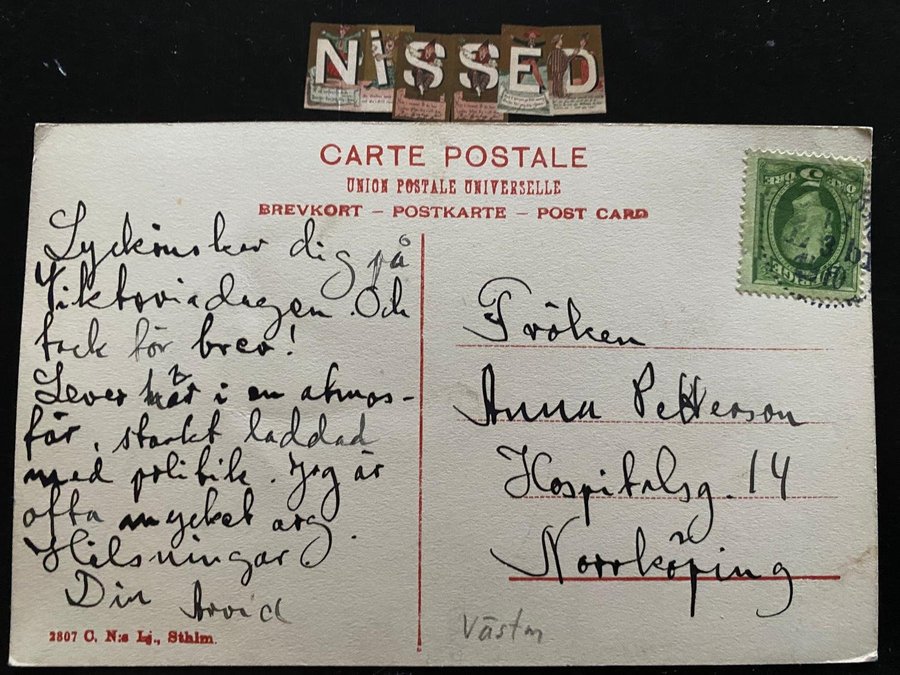 NISSED
CARTE POSTALE
UNION POSTALE UNIVERSELLE
BREVKORT – POSTKARTE – POST CARD
Lyckönskar dig på
Viktoriadagen. Och
tack för brev!
Lever här i en atmos-
fär, starkt laddad
med politik. Jag är
ofta mycket arg.
Hälsningar
Din Arvid
2807 C. N:s Lj., Sthlm.
Fröken
Anna Petterson
Hospitalsg. 14
Norrköping
Västm
5